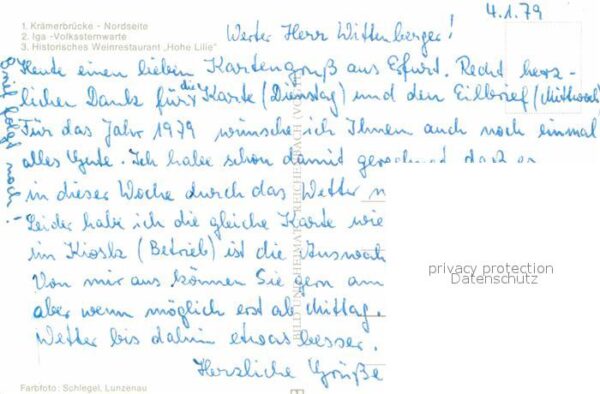 1. Krämerbrücke - Nordseite
2. Iga-Volkssternwarte
3. Historisches Weinrestaurant „Hohe Lilie"
4.1.79
Werter Herr Wittenberger!
Heute einen lieben Kartengruß aus Erfurt. Recht herz-
lichen Dank für die Karte (Dienstag) und den Eilbrief (Mittwoch)
Für das Jahr 1979 wünsche ich Ihnen auch noch einmal
alles Gute. Ich habe schon damit gerechnet, daß
in dieser Woche durch das Wetter
Leider habe ich die gleiche Karte wie
im Kiosk (Betrieb) ist die
Von mir aus können Sie gern am
aber wenn möglich erst ab Mittag.
Wetter bis dahin etwas besser.
Herzliche Grüße
Brief folgt noch!
BILD UND HEIMAT REICHENBACH (VOGTL
privacy protection
Datenschutz
Farbfoto: Schlegel, Lunzenau